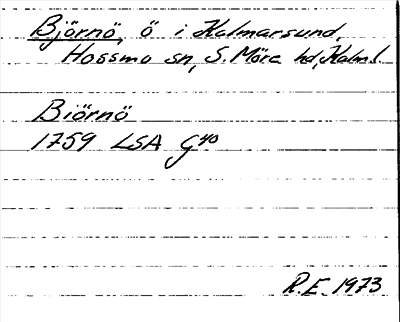 Björnö, ö i Kalmarsund,
Hossmo sn, S. Möre hd, Kalm l.
Biörnö
1759 LSA G40
R.E. 1973